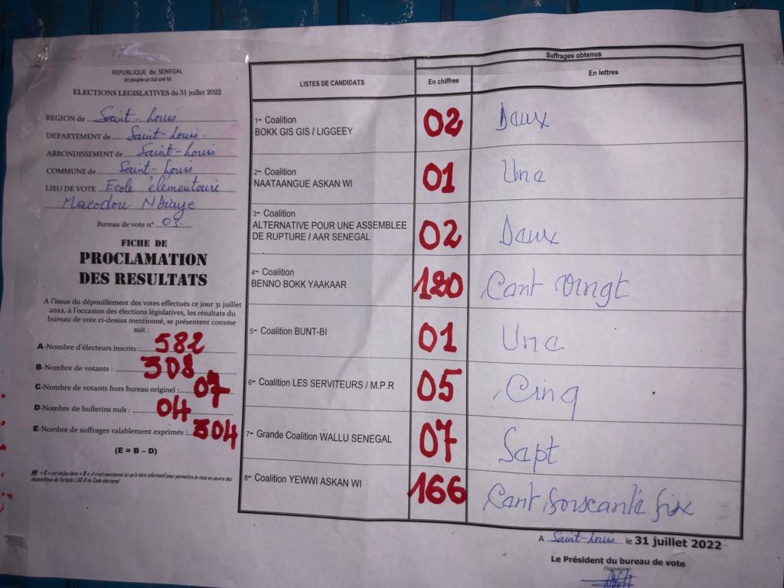 REPUBLIQUE du SENEGAL
Un peuple-un but-une foi
ELECTIONS LEGISLATIVES du 31 juillet 2022
REGION de Saint-Louis
DEPARTEMENT de Saint-Louis.
ARRONDISSEMENT de Saint-Louis
COMMUNE de Saint-Louis
LIEU DE VOTE Ecole élémentaire
Macodou NDiaye
Bureau de vote n° 03.
FICHE DE
PROCLAMATION
DES RESULTATS
A l'issue du dépouillement des votes effectués ce jour 31 juillet
2022, à l'occasion des élections législatives, les résultats du
bureau de vote ci-dessus mentionné, se présentent comme
suit :
A-Nombre d'électeurs inscrits : 582
B-Nombre de votants : 308
C-Nombre de votants hors bureau originel : 07
D-Nombre de bulletins nuls : 04
E-Nombre de suffrages valablement exprimés : 304
(E = B – D)
LISTES DE CANDIDATS
Suffrages obtenus
En chiffres
En lettres
1- Coalition
BOKK GIS GIS / LIGGEEY
02
Deux
2- Coalition
NAATAANGUE ASKAN WI
01
Une
3- Coalition
ALTERNATIVE POUR UNE ASSEMBLEE
DE RUPTURE / AAR SENEGAL
02
Deux
4- Coalition
BENNO BOKK YAAKAAR
120
Cent vingt
5- Coalition BUNT-BI
01
Une
6- Coalition LES SERVITEURS / M.P.R
05
Cinq
7- Grande Coalition WALLU SENEGAL
07
Sept
8- Coalition YEWWI ASKAN WI
166
Cent soixante six
A Saint-Louis le 31 juillet 2022
Le Président du bureau de vote